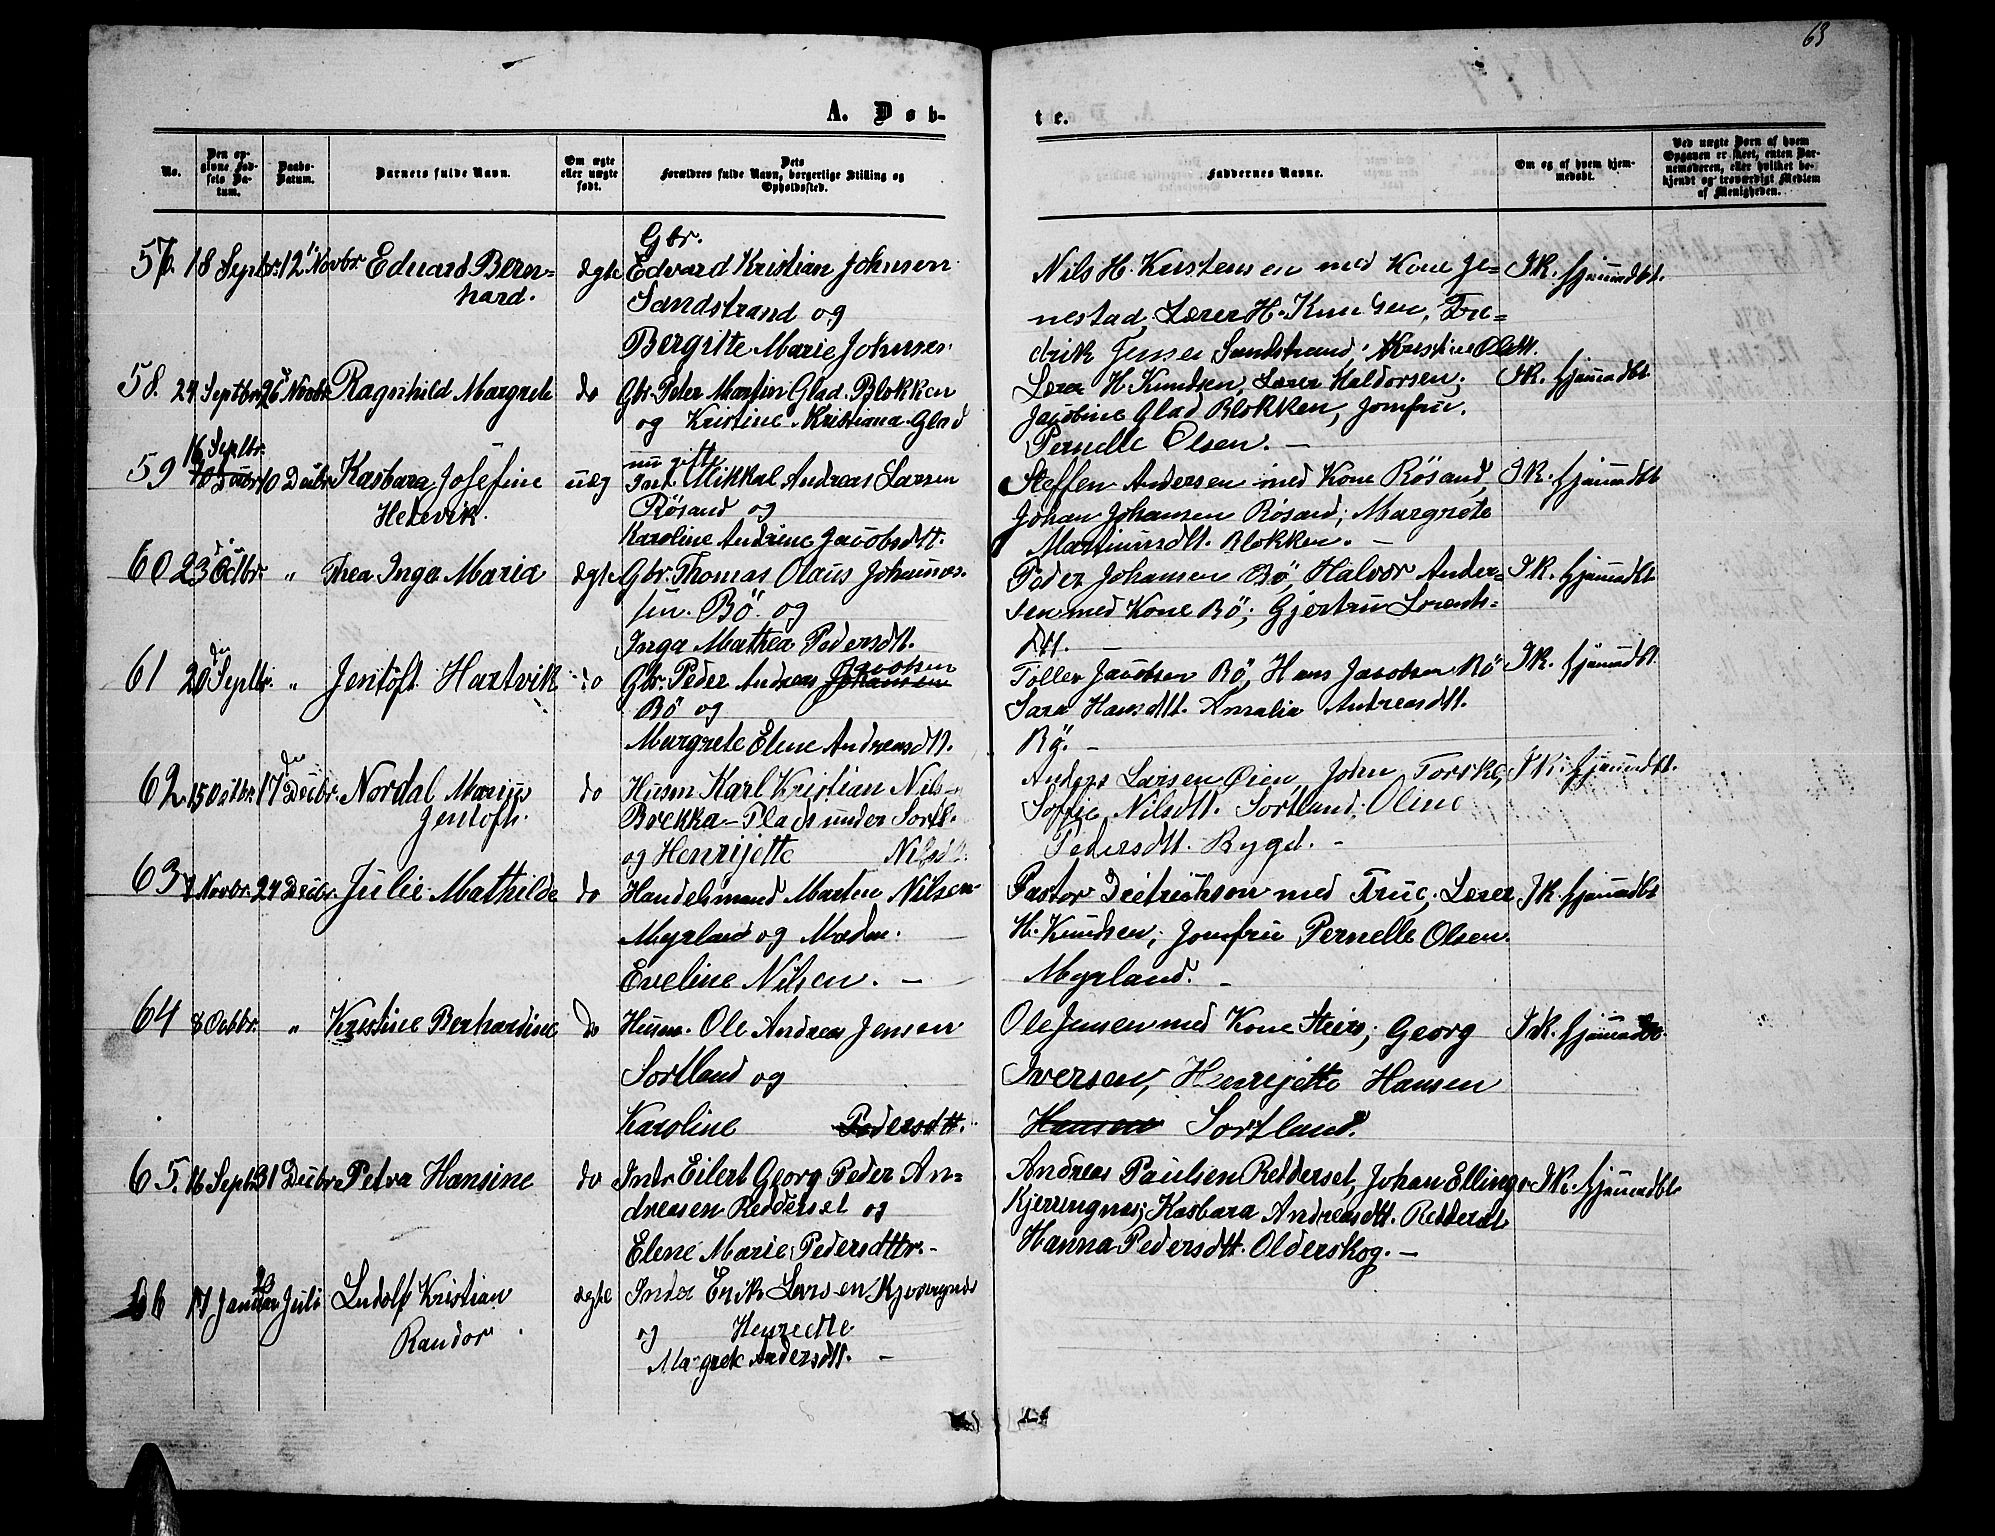 63
A. Døb-
te.
No.
Den op-
givne Fød-
sels Da-
tum.
Daabs-
Datum.
Barnets fulde Navn.
Om ægte
eller uægte
født.
Dets
Forældres fulde Navn, borgerlige Stilling og
Opholdssted.
Faddernes Navne.
Om og af hvem hjem-
medøbt.
Ved uægte Børn af hvem
Opgaven er skeet, enten Bar-
nemoderen, eller hvilket be-
kjendt og troværdigt Medlem
af Menigheden.
57. 18 Septbr. 12 Novbr. Eduard Bern=
hard.
ægte
Gbr.
Edvard Kristian Johnsen
Sandstrand og
Bergitte Marie Johnsen
Nils H. Kustensen med Kone Je=
nestad, Lærer H. Knudsen, Fre=
drik Jensen Sandstrand, Kristine Olsdtt.
I K. hjemmedbt.
58. 24 Septbr 26 Novbr. Ragnhild Margrete do
Gbr. Peter Martin Glad Blokken
og Kristine Kristiana Glad
Lærer H. Knudsen, Lærer Haldorsen,
Jacobine Glad Blokken, Jomfru
Pernelle Olsen. —
I K. hjemmedbt.
59 16 Septbr. 10 Decbr Kasbara Josefine
Hedevik.
uæg
nu gifte
Int. Mikkal Andreas Larsen
Røsand og
Karoline Andrine Jacobsdtt.
Steffen Andersen med Kone Røsand,
Johan Johansen Røsand; Margrete
Martinusdtt. Blokken. —
I K. hjemmedbt
60 23 Octbr. " Thea Inga Maria ægte
Gbr. Thomas Olaus Johannes-
sen Bö og
Inga Mathea Pedersdtt.
Peder Johansen Bö, Halvor Ander=
sen med Kone Bö; Gjertru Lorents=
dtt. —
I K. hjemmedbt
61 20 Septbr. " Jentoft Hartvik do
Gbr. Peder Andreas Johansen Jacobsen
Bö og
Margrete Elene Andreasdtt.
Toller Jacobsen Bö, Hans Jacobsen Bö
Sara Hansdtt. Amalia Andreasdtt.
Bö. —
I K. hjemmedbt.
62 15 Octbr. 17 Decbr. Nordal Marius
Jentoft.
do
Husm Karl Kristian Nils-
Brekka-Plads under Sortl.
og Henrijette Nilsdt.
Anders Larsen Øien, John Torske,
Soffie Nilsdtt. Sortland, Oline
Pedersdtt. Bygd. —
I K. hjemmedbt.
63 Novbr. 24 Decbr. Julie Mathilde do
Handelsmand Martin Nilsen
Myrland og Madm.
Eveline Nilsen. —
Pastor Deitrichson med Frue, Lærer
H. Knudsen, Jomfru Pernelle Olsen
Myrland. —
I K. hjemmedbt
64 8 Octbr. " Kristine Berhardine do
Husm. Ole Andreas Jensen
Sortland og
Karoline Pedersdtt.
Ole Jensen med Kone Steiro; Georg
Iversen, Henrijette Hansen
Hansen Sortland.
I K. hjemmedbt.
65. 16 Septbr 31 Decbr Petra Hansine do
Indr Eilert Georg Peder An=
dreasen Reddersel og
Elene Marie Pedersdttr.-
Andreas Paulsen Reddersel, Johan Ellings.
Kjerringnes; Kasbara Andreasdtt. Reddersel
Hanna Pedersdtt. Olderskog. —
I K. hjemmedbt.
66 17 Januar Juli Ludolf Kristian
Randor.
ægte
Inder Erik Larsen Kjerringnes
og Henredte
Margrete Andersdtt. —